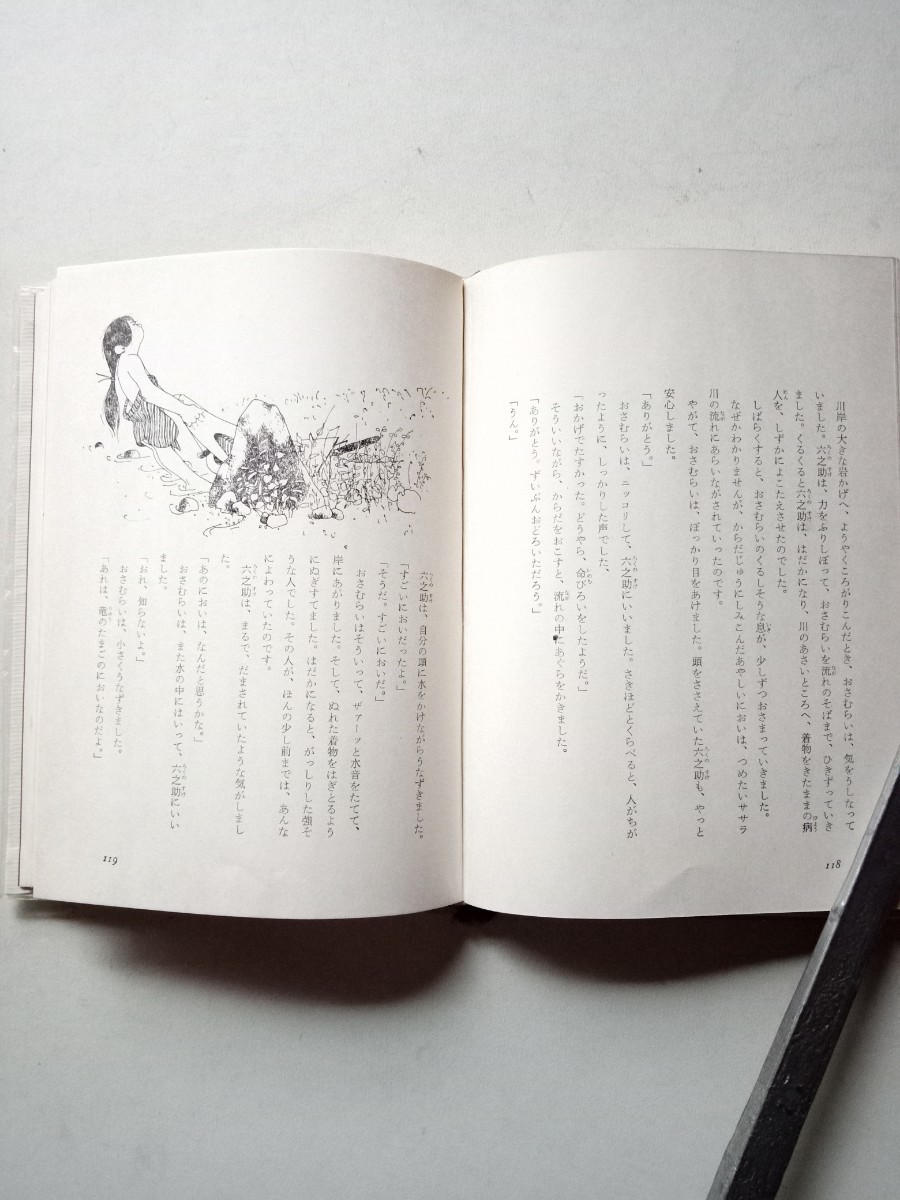 川岸の大きな岩かげへ、ようやくころがりこんだとき、おさむらいは、気をうしなって
いました。六之助は、力をふりしぼって、おさむらいを流れのそばまで、ひきずっていき
ました。くるくると六之助は、はだかになり、川のあさいところへ、着物をきたままの病
人を、しずかによこたえさせたのでした。
しばらくすると、おさむらいのくるしそうな息が、少しずつおさまっていきました。
なぜかわかりませんが、からだじゅうにしみこんだあやしいにおいは、つめたいサラサラ
川の流れにあらいながされていったのです。
やがて、おさむらいは、ぽっかり目をあけました。頭をささえていた六之助も、やっと
安心しました。
「ありがとう。」
おさむらいは、ニッコリして、六之助にいいました。さきほどとくらべると、人がちが
ったように、しっかりした声でした、
「おかげでたすかった。どうやら、命びろいをしたようだ。」
そういいながら、からだをおこすと、流れの中にあぐらをかきました。
「ありがとう。ずいぶんおどろいただろう。」
「うん。」
118
六之助は、自分の頭に水をかけながらうなずきました。
「すごいにおいだったよ。」
「そうだ。すごいにおいだ。」
おさむらいはそういって、ザァーッと水音をたてて、
岸にあがりました。そして、ぬれた着物をはぎとるよう
にぬぎすてました。はだかになると、がっしりした強そ
うな人でした。その人が、ほんの少し前までは、あんな
によわっていたのです。
六之助は、まるで、だまされていたような気がしまし
た。
「あのにおいは、なんだと思うかな。」
おさむらいは、また水の中にはいって、六之助にいい
ました。
「おれ、知らないよ。」
おさむらいは、小さくうなずきました。
「あれは、竜のたまごのにおいなのだよ。」
119